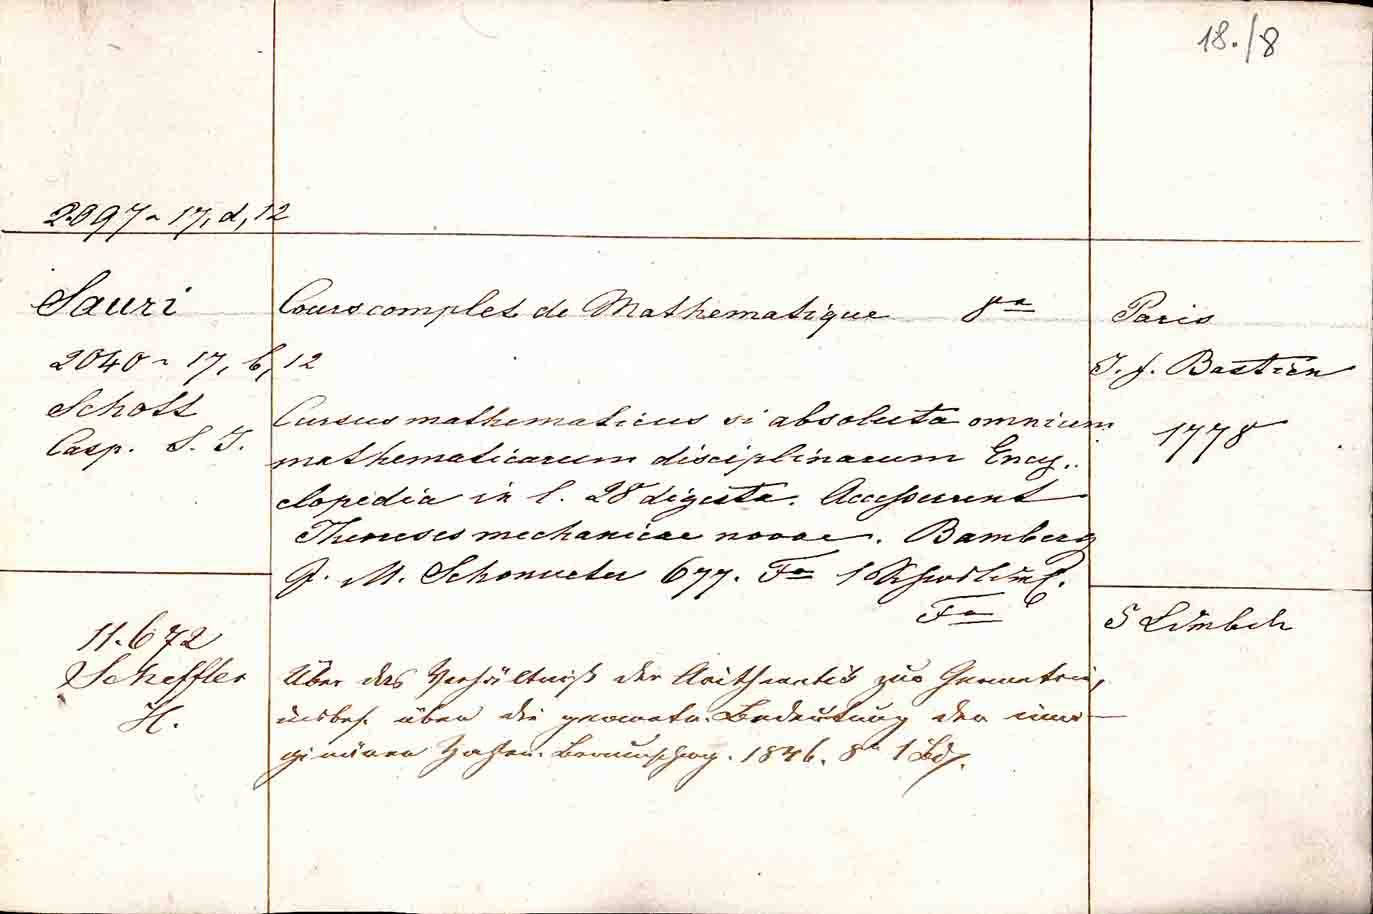 18./8
2097 ~ 17, d, 12
Sauri
Cours complet de Mathematique 8°
Paris
2040 ~ 17, b, 12
J. f. Bastien
Schott
Cursus mathematicus si absoluta omnium
1778
Casp. S. J.
mathematicarum disciplinarum Ency..
clopedia in l. 28 digesta. Accesserunt
Theoreses mechanicae novae. Bamberg
J. M. Schonveter 677. F°
F°
5 Limbch
11.672
Scheffler
Über das Verhältniß der Arithmetik zur Geometrie,
H.
insbes. über die geometr. Bedeutung der ima-
ginären Zahlen. Braunschwg. 1846. 8° 1 Bd.